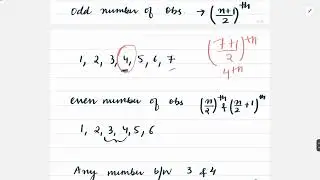 odd number of obs → (n+1/2)th
1, 2, 3, 4, 5, 6, 7
(7+1/2)th
4th
even number of obs (n/2)th & (n/2+1)th
1, 2, 3, 4, 5, 6
Any number b/w 3 & 4